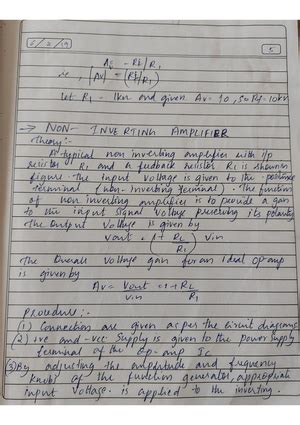 5
Av = Rf/R1
ie, |Av| = (Rf/R1)
let R1 = 1kΩ and given Av = 10, so Rf = 10kΩ
→ NON- INVERTING AMPLIFIER
Theory :-
A typical non inverting amplifier with i/p
resistor R1 and a feedback resistor RL is shown in
figure the input voltage is given to the positive
terminal (non-inverting terminal). The function
of non inverting amplifier is to provide a gain
to the input signal voltage preserving its polarity
The output voltage is given by
Vout = (1+ RL/R1) Vin
The overall voltage gain for an ideal op-amp
is given by
Av = Vout/Vin = 1+RL/R1
Procedure :-
(1) Connection are given as per the circuit diagrams
(2) +ve and -vcc supply is given to the power supply
terminal of the Op-amp IC
(3) By adjusting the amplitude and frequency
knob of the function generator, appropriate
input voltage is applied to the inverting.